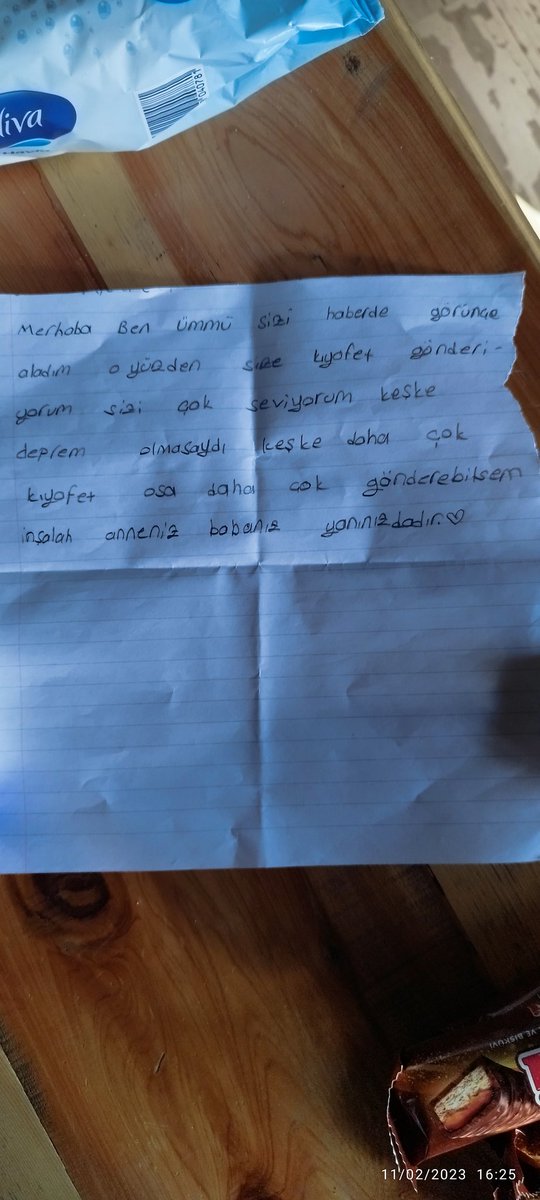 liva
Merhaba Ben ümmü sizi haberde görünçe
aladım o yüzden size kıyafet gönderi-
yorum sizi çok seviyorum keşke
deprem olmasaydı keşke daha çok
kıyafet osa daha çok gönderebilsem
inşalah anneniz babanız yanınızdadır.♡
VE BİSKÜVİ
11/02/2023 16:25